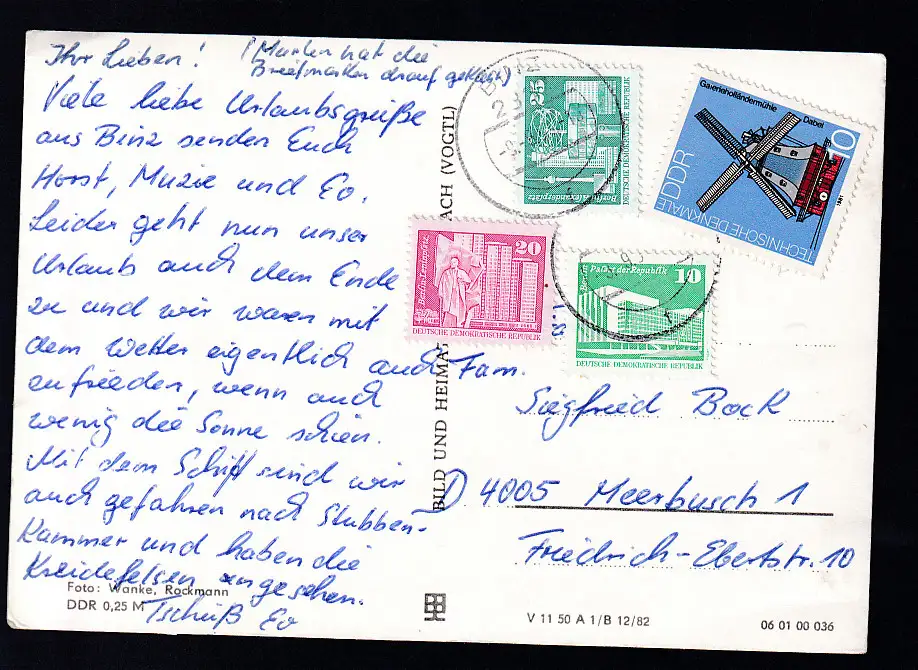 Ihr Lieben! (Marlen hat die
Briefmarken drauf geklebt)
Viele liebe Urlaubsgrüße
aus Binz senden Euch
Horst, Muzie und Ev.
Leider geht nun unser
Urlaub auch dem Ende
zu und wir waren mit
dem Wetter eigentlich auch
zufrieden, wenn auch
wenig die Sonne schien.
Mit dem Schiff sind wir
auch gefahren nach Stubben-
Kammer und haben die
Kreidefelsen angesehen.
Tschüß Ev
Foto: Wanke, Rockmann
DDR 0,25 M
BILD UND HEIMAT
ACH (VOGTL)
25
Berlin, Alexanderplatz
DEUTSCHE DEMOKRATISCHE REPUBLIK
Galerieholländermühle
Dabel
10
DDR
TECHNISCHE DENKMALE
1981
20
Berlin, Leninplatz
DEUTSCHE DEMOKRATISCHE REPUBLIK
Berlin, Palast der Republik
10
DEUTSCHE DEMOKRATISCHE REPUBLIK
Fam.
Siegfried Bock
D 4005 Meerbusch 1
Friedrich-Ebertstr. 10
V 11 50 A 1/B 12/82
06 01 00 036